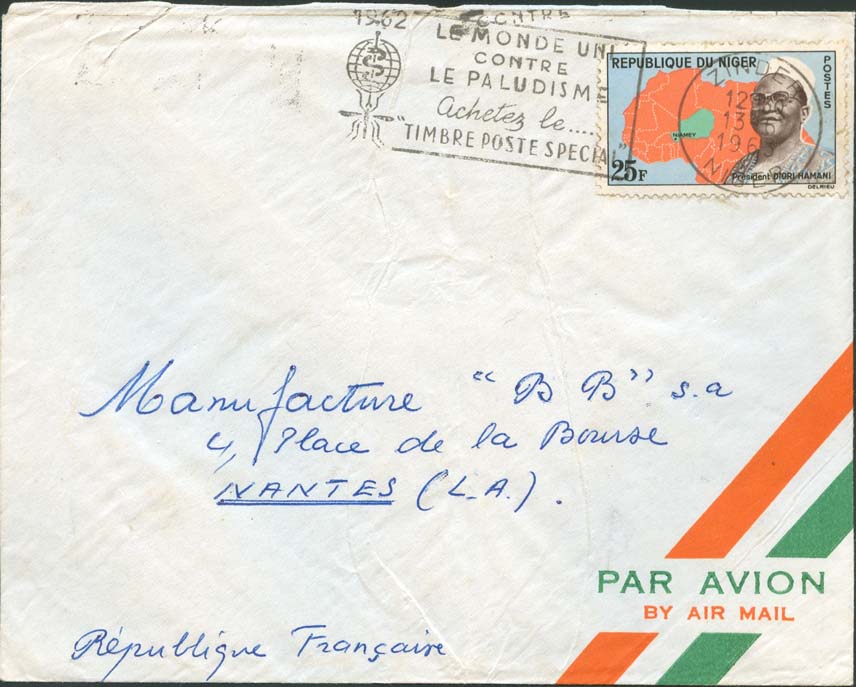 1962 CONTRE
LE MONDE UNI
CONTRE
LE PALUDISME
Achetez le....
"TIMBRE POSTE SPECIAL"
REPUBLIQUE DU NIGER
POSTES
NIAMEY
25F
Président DIORI HAMANI
DELRIEU
ZINDER
12
13
196
NIGER
Manufacture "B B" s.a
4, Place de la Bourse
NANTES (L.A.).
PAR AVION
BY AIR MAIL
République Française